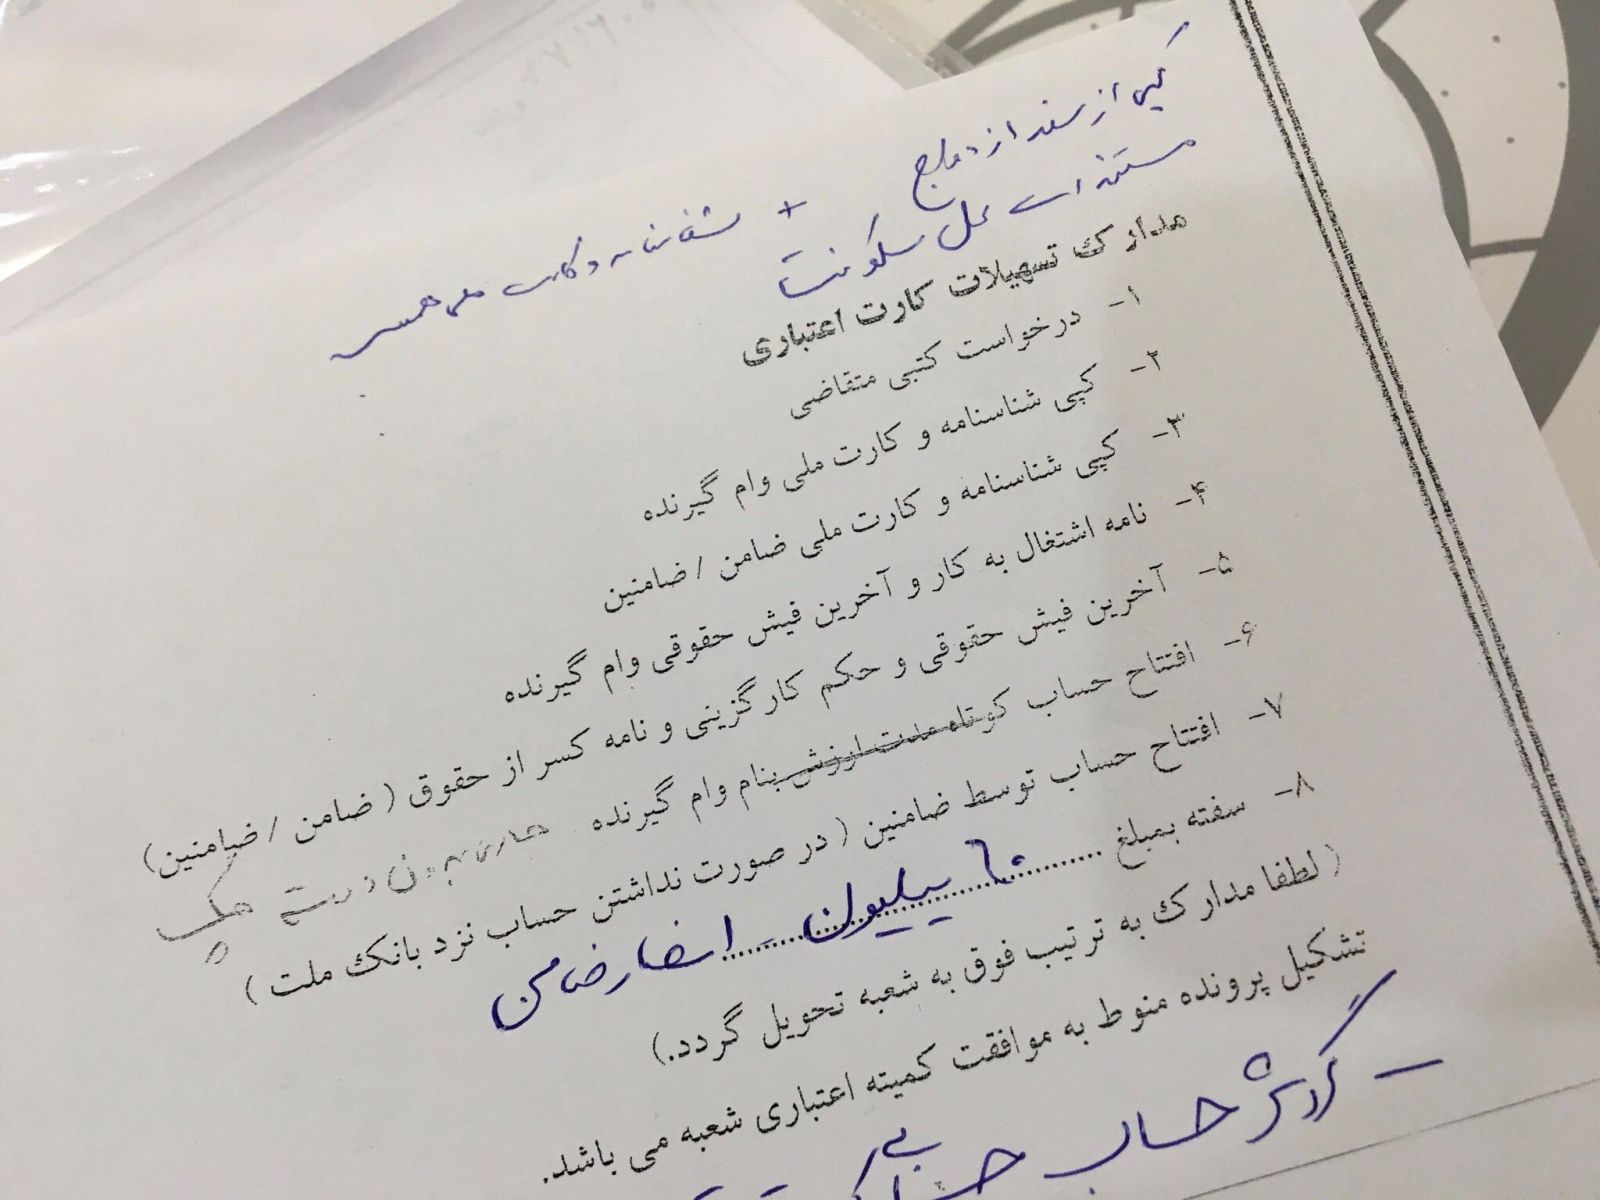 کپی از سند ازدواج + شناسنامه و کارت ملی همسر
مستندات محل سکونت
مدارک تسهیلات کارت اعتباری
۱- درخواست کتبی متقاضی
۲- کپی شناسنامه و کارت ملی وام گیرنده
۳- کپی شناسنامه و کارت ملی ضامن / ضامنین
۴- نامه اشتغال به کار و آخرین فیش حقوقی وام گیرنده
۵- آخرین فیش حقوقی و حکم کارگزینی و نامه کسر از حقوق ( ضامن / ضامنین)
۶- افتتاح حساب کوتاه مدت ارزش بنام وام گیرنده جاری بدون دسته چک
۷- افتتاح حساب توسط ضامنین ( در صورت نداشتن حساب نزد بانک ملت )
۸- سفته بمبلغ ............ ۶۰ میلیون - امضا ضامن
( لطفا مدارک به ترتیب فوق به شعبه تحویل گردد.)
تشکیل پرونده منوط به موافقت کمیته اعتباری شعبه می باشد.
- گردش حساب